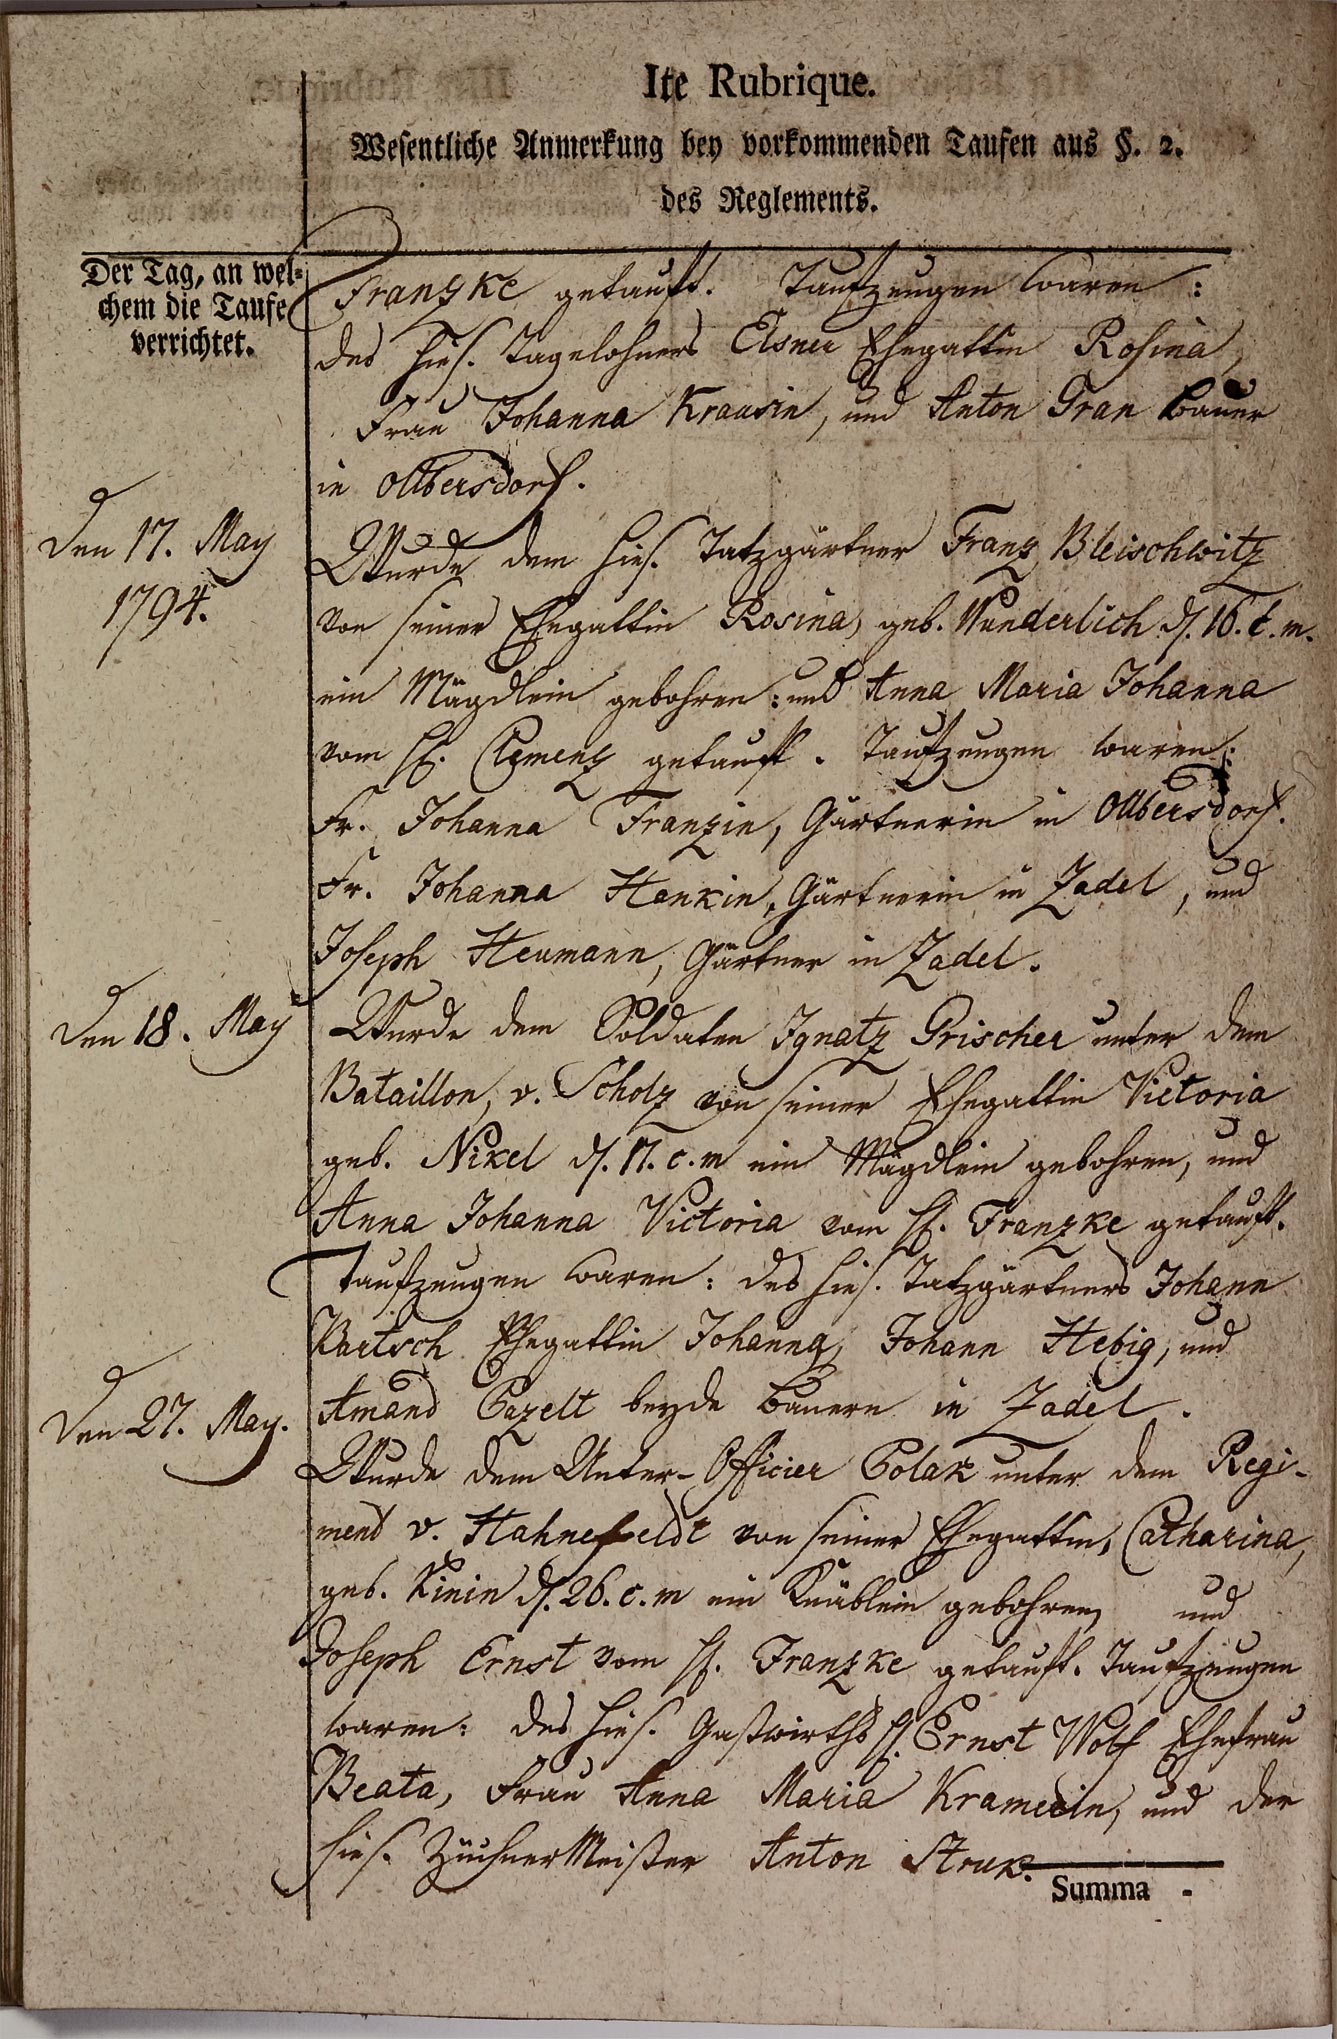 Ite Rubrique.
Wesentliche Anmerkung bey vorkommenden Taufen aus §. 2.
des Reglements.
Der Tag, an wel-
chem die Taufe
verrichtet.
Franzke getauft. Taufzeugen waren:
des hies. Tagelohners Elsner Ehegattin Rosina,
Frau Johanna Krausin, und Anton Gran Bauer
in Olbersdorf.
Den 17. May
1794.
Wurde dem hies. Tatzgärtner Franz Bleischwitz
von seiner Ehegattin Rosina, geb. Wunderlich d. 16. c. m.
ein Mägdlein gebohren: und Anna Maria Johanna
vom H. Clemenz getauft. Taufzeugen waren:
Fr. Johanna Franzin, Gärtnerin in Olbersdorf.
Fr. Johanna Henkin, Gärtnerin in Zadel, und
Joseph Heumann, Gärtner in Zadel.
Den 18. May
Wurde dem Soldaten Ignatz Grischer unter dem
Bataillon, v. Scholz von seiner Ehegattin Victoria
geb. Nikel d. 17. c. m ein Mägdlein gebohren, und
Anna Johanna Victoria vom H. Franzke getauft.
Taufzeugen waren: des hies. Tatzgärtners Johann
Bartsch Ehegattin Johanna, Johann Hebig, und
Amand Pazelt beyde Bauern in Zadel.
Den 27. May.
Wurde dem Unter-Officier Polak unter dem Regi-
ment v. Hahnefeldt von seiner Ehegattin, Catharina,
geb. Kinin d. 26. c. m ein Knäblein gebohren, und
Joseph Ernst vom H. Franzke getauft. Taufzeugen
waren: des hies. Gastwirths H. Ernst Wolf Ehefrau
Beata, Frau Anna Maria Kramerin, und der
hies. Züchner Meister Anton Struk.
Summa -